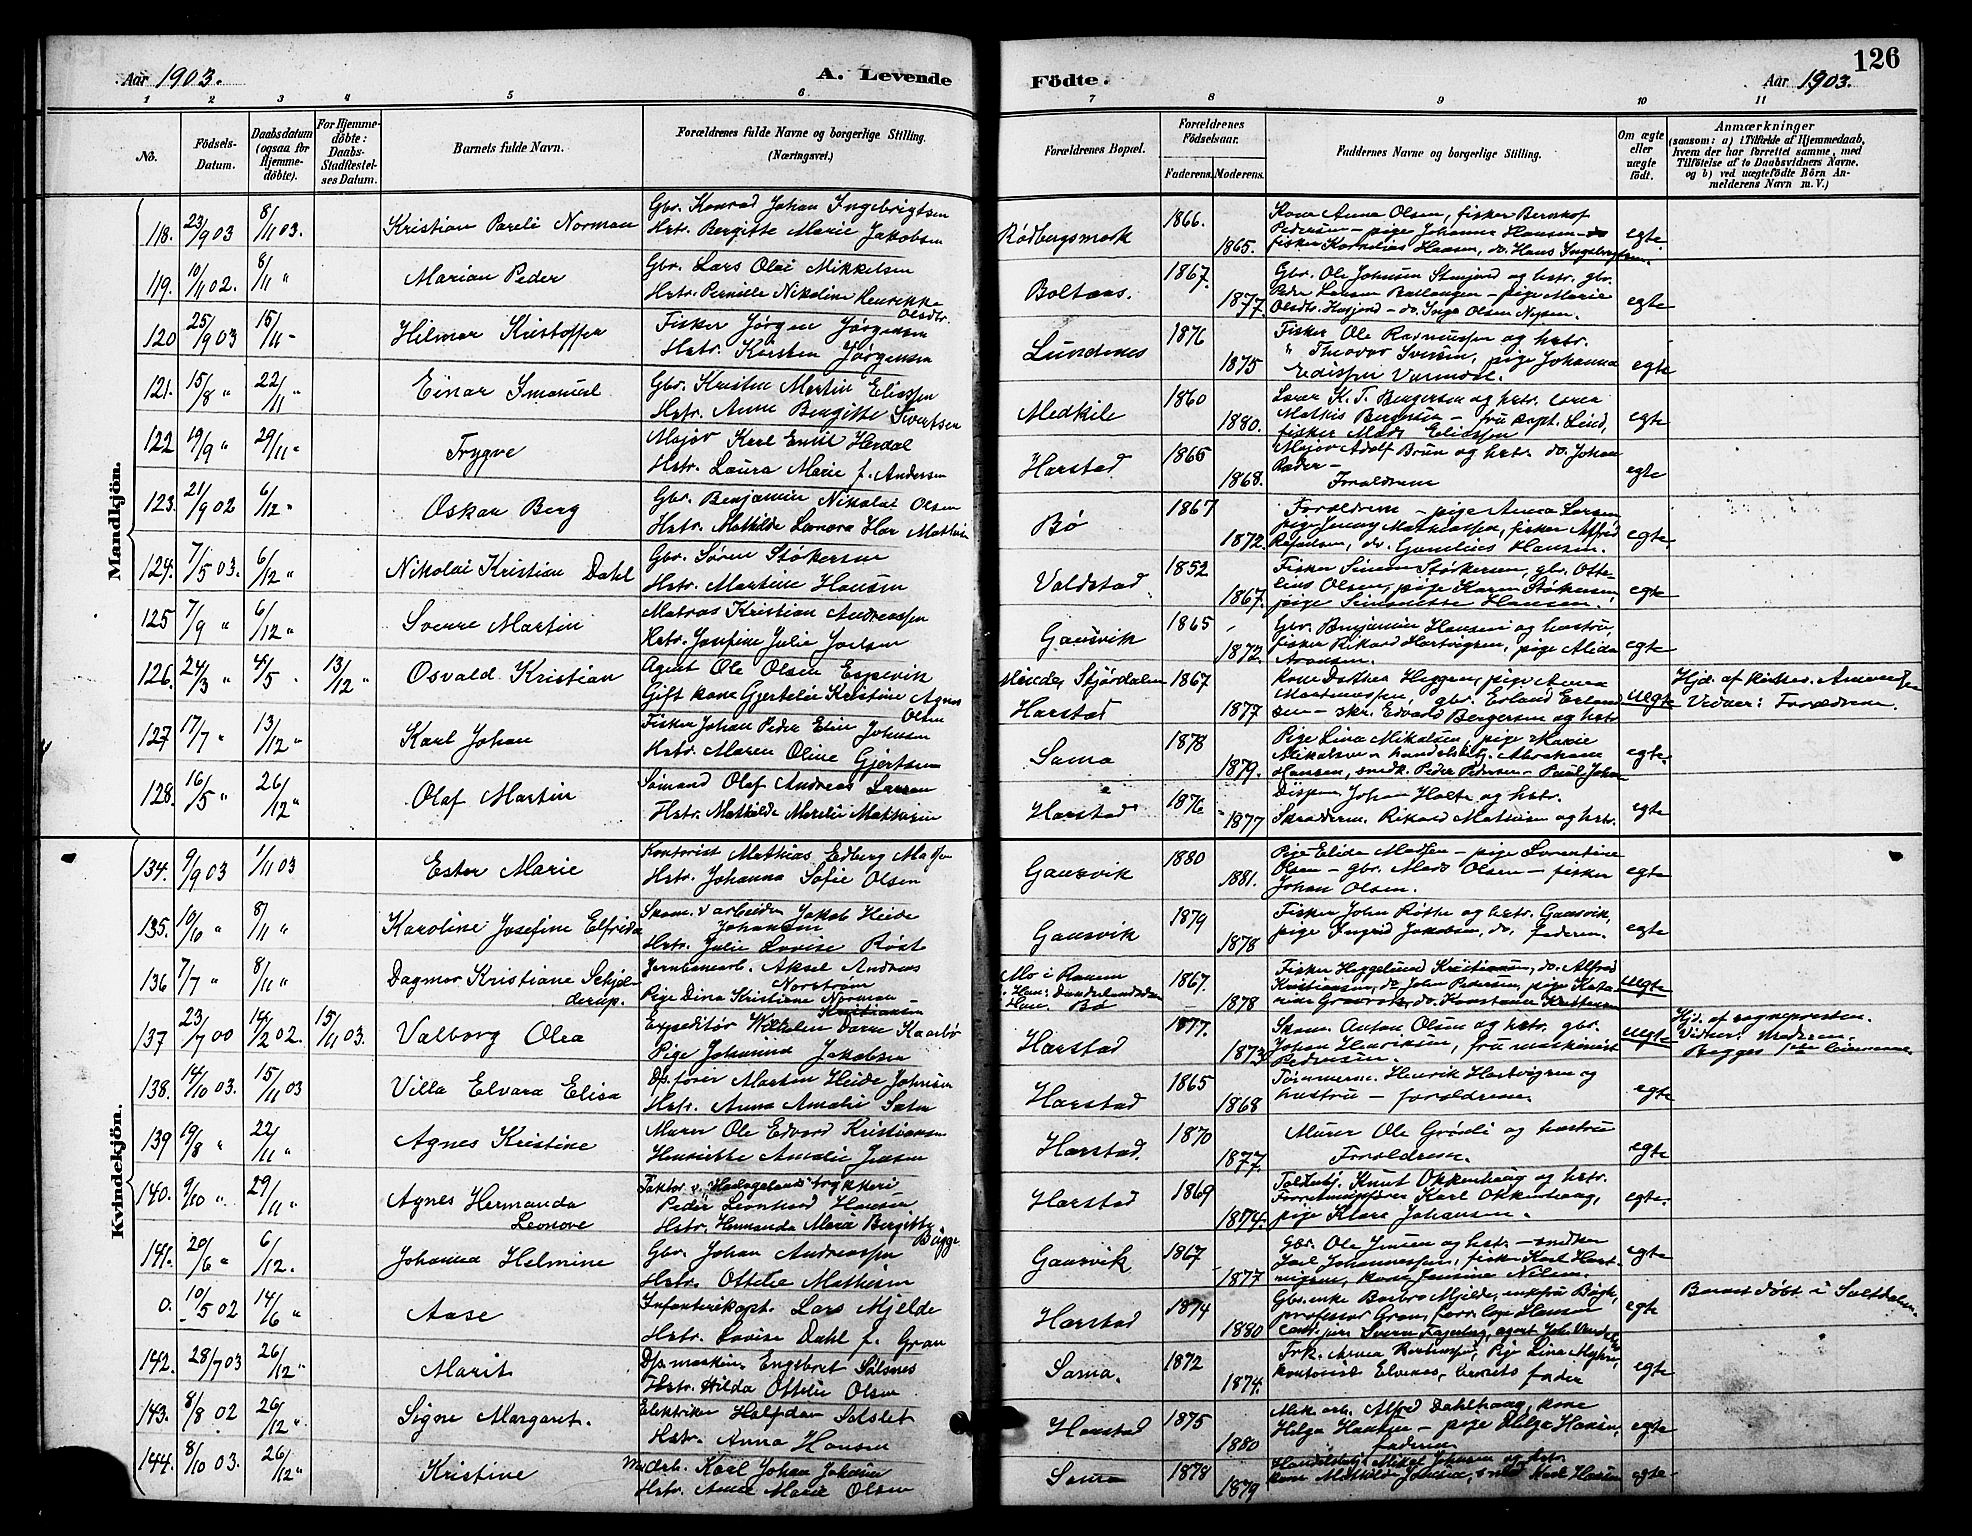 126
Aar 1903.
A. Levende
Födte.
Aar 1903.
1 2 3 4 5 6 7 8 9 10 11
No.
Födsels-Datum.
Daabsdatum (ogsaa for Hjemmedöbte).
For Hjemmedöbte: Daabs-Stadfestelses Datum.
Barnets fulde Navn.
Forældrenes fulde Navne og borgerlige Stilling.
(Næringsvei.)
Forældrenes Bopæl.
Forældrenes Födselsaar.
Faderens. Moderens.
Faddernes Navne og borgerlige Stilling.
Om ægte eller uægte födt.
Anmærkninger
(saasom: a) i Tilfælde af Hjemmedaab, hvem der har forrettet samme, med Tilföielse af to Daabsvidners Navne, og b) ved uægtefödte Börn Anmelderens Navn m. V.)
Mandkjön.
118. 23/9 03 8/11 03. Kristian Pareli Norman
Gbr. Konrad Johan Ingebrigtsen
Hstr. Bergitte Marie Jakobsen
Rödbergsmark 1866. 1865.
Kone Anna Olsen, fisker
Pedersen – pige Johanna Hansen – do
fisker Kornelius Hansen, do. Hans
egte
119. 10/11 02. 8/11 " Marian Peder
Gbr. Lars Olai Mikkelsen
Hstr. Pernille Nikoline Henrikke Olsdtr.
Boltaas. 1867. 1877.
Gbr. Ole Johnsen og hstr. gbr.
Peder Larsen Ballangen – pige Marie
egte
120 25/9 03 15/11 - Hilmar Kristoffer
Fisker Jørgen Jørgensen
Hstr. Karsten Jørgensen
Lundenes 1876 1875
Fisker Ole Rasmussen og hstr.
" Theodor pige Johanna
egte
121. 15/8 " 22/11 " Einar Imanuel
Gbr. Kristen Martin Eliassen
Hstr. Anne Bergitte Sivertsen
Medkile 1860 1880.
Lærer K. T. Bergersen og hstr.
Mathis Bergersen – fru kapt. Lind,
fisker Mads Eliassen
egte
122 19/9 " 29/11 " Trygve
Major Karl Emil Herdal
Hstr. Laura Marie f. Andersen
Harstad 1865 1868.
Major Adolf Bruun og hstr. do. Johan
Forældrene
egte
123. 21/9 02 6/12 " Oskar Berg
Gbr. Benjamin Nikolai Olsen
Hstr. Mathilde
Bø 1867 1872.
Forældrene – pige Anna Larsen
pige Jenny Mathiassen, fisker Alfred
do. Hansen.
egte
124. 7/5 03. 6/12 " Nikolai Kristian Dahl
Gbr. Søren Størkersen
Hstr. Martine Hansen
Valdstad 1852 1867.
Fisker Simon Størkersen, gbr.
Olsen, pige Karen Størkersen,
pige Simonette Hansen.
egte
125 7/9 " 6/12 " Sverre Martin
Matros Kristian Andreassen
Hstr. Josefine Julie Joelsen
Gausvik 1865 1872.
Gbr. Benjamin Hansen og hustru,
fisker Rikard Hartvigsen, pige Alida
egte
126. 24/3 " 4/5 13/12 " Osvald Kristian
Agent Ole Olsen Espevik
Gift kone Gjertelie Kristine Agnes Olsen
Stjørdalen
Harstad 1867 1877
Kone Dorthea pige Anna
gbr. Erland Erland-
sen – skr. Edvard Bergersen og hstr.
uegte
Hjd. af
Vidner: Forældrene.
127 17/7 " 13/12 " Karl Johan
Fisker Johan Peder Johnsen
Hstr. Maren Oline Gjertsen
Sama 1878 1879.
Pige Lina Mikalsen, pige Marie
Mikalsen – handelsbetj. Abraham
Hansen, smedk. Peder Pedersen – Paul Johan
egte.
128. 16/5 " 26/12 " Olaf Martin
Sømand Olaf Andreas Larsen
Hstr. Mathilde Merelie Mathisen
Harstad 1876 1877
Johan Holte og hstr.
Skrædderm. Rikard Mathisen og hstr.
egte
Kvindekjön.
134. 9/9 03 1/11 03 Ester Marie
Kontorist Mathias Edberg Madsen
Hstr. Johanna Sofie Olsen
Gausvik 1880 1881.
Pige Elida Madsen – pige Lorentine
Olsen – gbr. Mads Olsen – fisker
Johan Olsen.
egte
135. 10/10 " 8/11 " Karoline Josefine Elfrida
Skom. v arbeider Jakob Heide Johansen
Hstr. Julie Lovise Røst
Gausvik 1879 1878
Fisker John Røtte og hstr. Gausvik,
pige Ingrid Jakobsen, do. faderen.
egte
136 7/7 " 8/11 " Dagmar Kristiane Schjelderup.
Jernbanearb. Aksel Andreas Norstrøm
Pige Dina Kristiane Norman – Kristiansen
Mo i Ranen
Bø 1867. 1878
Fisker Heggelund Kristiansen, do. Alfred
Kristiansen, do. John Pedersen, pige
do. Konstanse Kristensen
uegte
137 23/7 00 14/2 02. 15/11 03. Valborg Olea
Expeditør Wilhelm Kaarbø
Pige Johanna Jakobsen
Harstad 1877. 1873
Skom. Anton Olsen og hstr. gbr.
Johan Henriksen, fru maskinist
Pedersen.
uegte
Hjd. af sognepresten.
Vidner: Moderen.
Begges 1ste
138. 14/10 03. 15/11 03 Villa Elvara Elisa
Dp.fører Martin Heide Johnsen
Hstr. Anna Amalie
Harstad 1865 1868
Tømmerm. Henrik Hartvigsen og
hustru – forældrene
egte
139 19/8 " 22/11 " Agnes Kristine
Murer Ole Edvard Kristiansen
Henriette Amalie Jensen
Harstad. 1870 1877.
Murer Ole Grødi og hustru
Forældrene.
egte
140. 9/10 " 29/11 " Agnes Hermanda Leonove
Faktor v. "Haalogalands" trykkeri
Peder Leonhard Hansen
Hstr. Hermanda Maria Bergitte Bugge
Harstad 1869 1874.
Toldbetj. Knut Okkenhaug og hstr.
Forretningsfører Karl Okkenhaug,
pige Klara Johansen.
egte.
141. 20/6 " 6/12. Johanna Helmine
Gbr. Johan Andreassen
Hstr. Ottelie Mathisen
Gausvik 1867 1877
Gbr. Ole Jensen og hstr. – snedker
Joel Johannessen, fisker Karl Hart-
vigsen, kone Jensine Nilsen.
egte
0. 10/5 02 14/6 " Aase
Infanterikapt. Lars Mjelde
Hstr. Lovise Dahl f. Gran
Harstad 1874 1880
Gbr.enke Barbro Mjelde, enkefru
professor Gran,
egte
Barnet døbt i Saltdalen.
142. 28/7 03 26/12 " Marit
Dp. maskin. Engebret Selsnes
Hstr. Hilda Ottelie Olsen
Sama. 1872 1874.
Frk. Anna Pige Lina
kontorist Elvenes, barnets fader
egte
143. 8/8 02 26/12 " Signe Margaret.
Elektriker Halfdan Sætslet
Hstr. Anna Hansen
Harstad 1875 1880
Mek. arb. Alfred Dahlhaug, kone
Helga Hansen – pige Helga Hansen,
faderen
egte
144. 8/10 03. 26/12 " Kristine
arb. Karl Johan Johnsen
Hstr. Anne Marie Olsen
Sama 1878 1879
Handelsbetj. Mikal Johnsen og hstr.
kone Mathilde Johnsen, Karl Hansen
egte